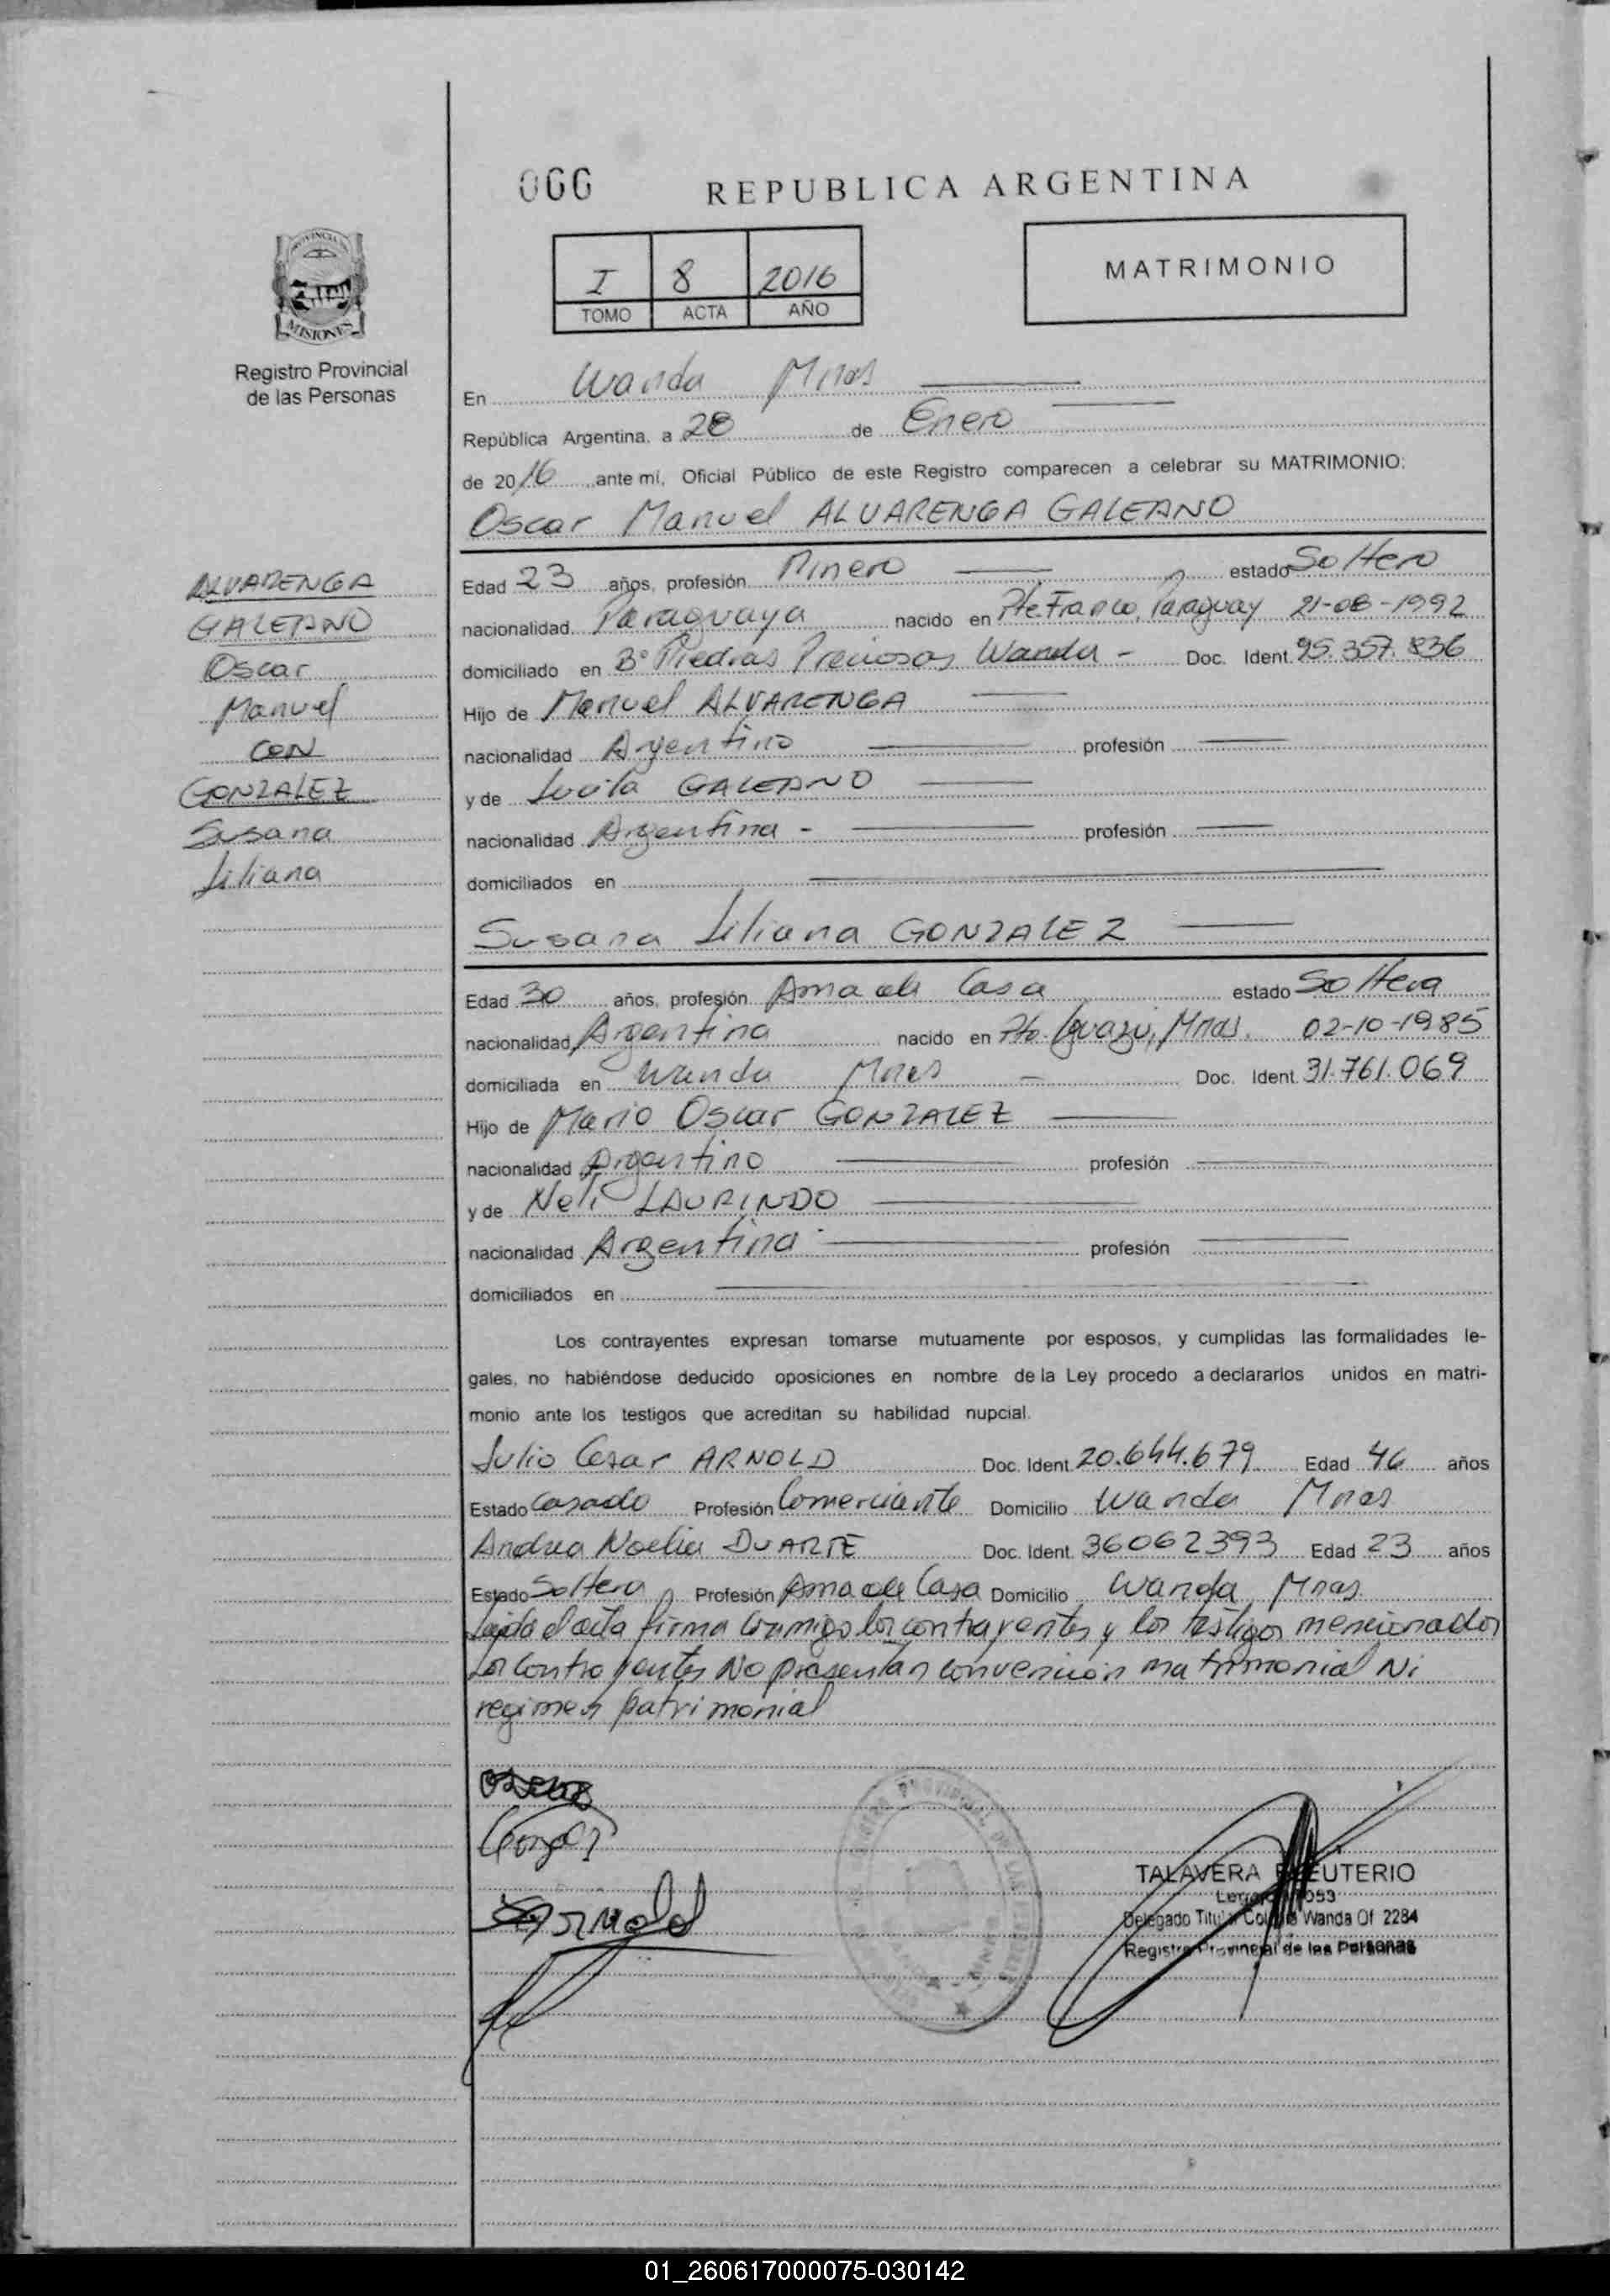 066
REPUBLICA ARGENTINA
I 8 2016
TOMO ACTA AÑO
MATRIMONIO
PROVINCIA DE
MISIONES
Registro Provincial
de las Personas
ALVARENGA
GALEANO
Oscar
Manuel
CON
GONZALEZ
Susana
Liliana
En Wanda Mnes
República Argentina, a 28 de Enero
de 2016 ante mí, Oficial Público de este Registro comparecen a celebrar su MATRIMONIO:
Oscar Manuel ALVARENGA GALEANO
Edad 23 años, profesión Minero estado Soltero
nacionalidad Paraguaya nacido en Pte Franco, Paraguay 21-08-1992
domiciliado en B° Piedras Preciosas Wanda - Doc. Ident. 95.357.836
Hijo de Manuel ALVARENGA
nacionalidad Argentino profesión
y de GALEANO
nacionalidad Argentina - profesión
domiciliados en
Susana Liliana GONZALEZ
Edad 30 años, profesión Ama de Casa estado Soltera
nacionalidad Argentina nacido en Pto. Iguazú, Mnes. 02-10-1985
domiciliada en Wanda Mnes - Doc. Ident. 31.761.069
Hijo de Mario Oscar GONZALEZ
nacionalidad Argentino profesión
y de Neli LAURINDO
nacionalidad Argentina profesión
domiciliados en
Los contrayentes expresan tomarse mutuamente por esposos, y cumplidas las formalidades le-
gales, no habiéndose deducido oposiciones en nombre de la Ley procedo a declararlos unidos en matri-
monio ante los testigos que acreditan su habilidad nupcial.
Julio Cesar ARNOLD Doc. Ident. 20.644.679 Edad 46 años
Estado Casado Profesión Comerciante Domicilio Wanda Mnes
Andrea Noelia DUARTE Doc. Ident. 36062393 Edad 23 años
Estado Soltera Profesión Ama de Casa Domicilio Wanda Mnes.
Leída el acta firma conmigo los contrayentes y los testigos mencionados
Los contrayentes No presentan convención matrimonial Ni
regimen patrimonial
Arnold
TALAVERA ELEUTERIO
Delegado Titular Colonia Wanda Of. 2284
Registro Provincial de las Personas
01_260617000075-030142